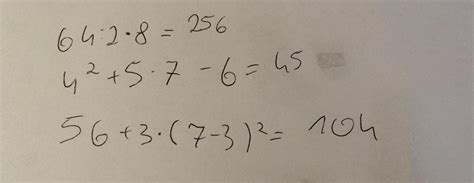 64:2·8 = 256
4²+5·7-6=45
56+3·(7-3)²= 104